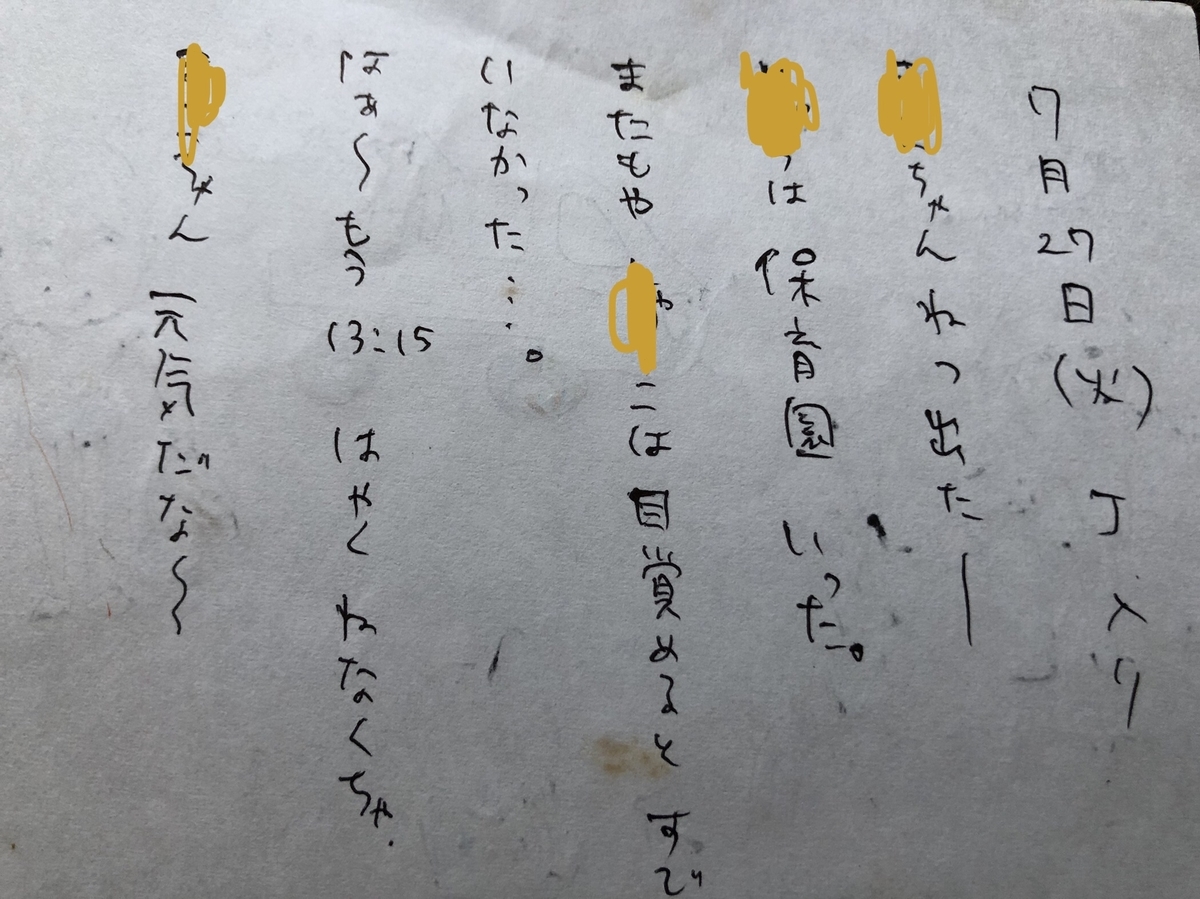 7月27日(火) J 入り
ちゃんねつ出たー
は 保育園 いった。
またもや には 目覚めると すで
いなかった…。
はぁ〜 もう 13:15 はやく ねなくちゃ.
ゃん 元気だな〜〜